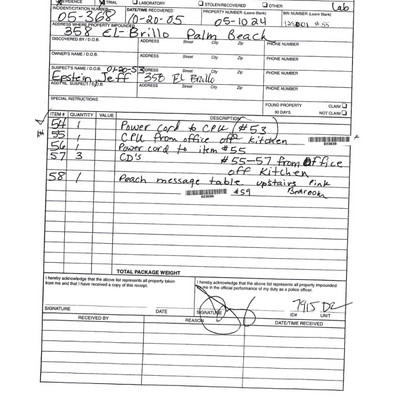 EVIDENCE TRIAL LABORATORY STOLEN/RECOVERED OTHER Lab
INCIDENT/CITATION NUMBER DATE/TIME RECOVERED PROPERTY NUMBER (Leave Blank) BIN NUMBER (Leave Blank)
05-368 10-20-05 05-1024
ADDRESS WHERE PROPERTY IMPOUNDED
358 El-Brillo Palm Beach
DISCOVERED BY / D.O.B. ADDRESS Street City Zip PHONE NUMBER
OWNER'S NAME / D.O.B. ADDRESS Street City Zip PHONE NUMBER
SUSPECT'S NAME / D.O.B. 01-20-53 ADDRESS Street City Zip PHONE NUMBER
Epstein, Jeff 358 El Brillo
ADD'TL SUSPECT / D.O.B. ADDRESS Street City Zip PHONE NUMBER
SPECIAL INSTRUCTIONS FOUND PROPERTY CLAIM
90 DAYS NOT CLAIM
ITEM # QUANTITY VALUE DESCRIPTION
54 1 Power cord to CPU (#53)
55 1 CPU from office off Kitchen
56 1 Power cord to item #55
57 3 CD's #55-57 from Office
off Kitchen
58 1 Peach message table upstairs Pink
Bearoom
#59
TOTAL PACKAGE WEIGHT
I hereby acknowledge that the above list represents all property taken
from me and that I have received a copy of this receipt.
I hereby acknowledge that the above list represents all property impounded
in the official performance of my duty as a police officer.
7915 DR
SIGNATURE DATE SIGNATURE ID# UNIT
RECEIVED BY REASON DATE/TIME RECEIVED